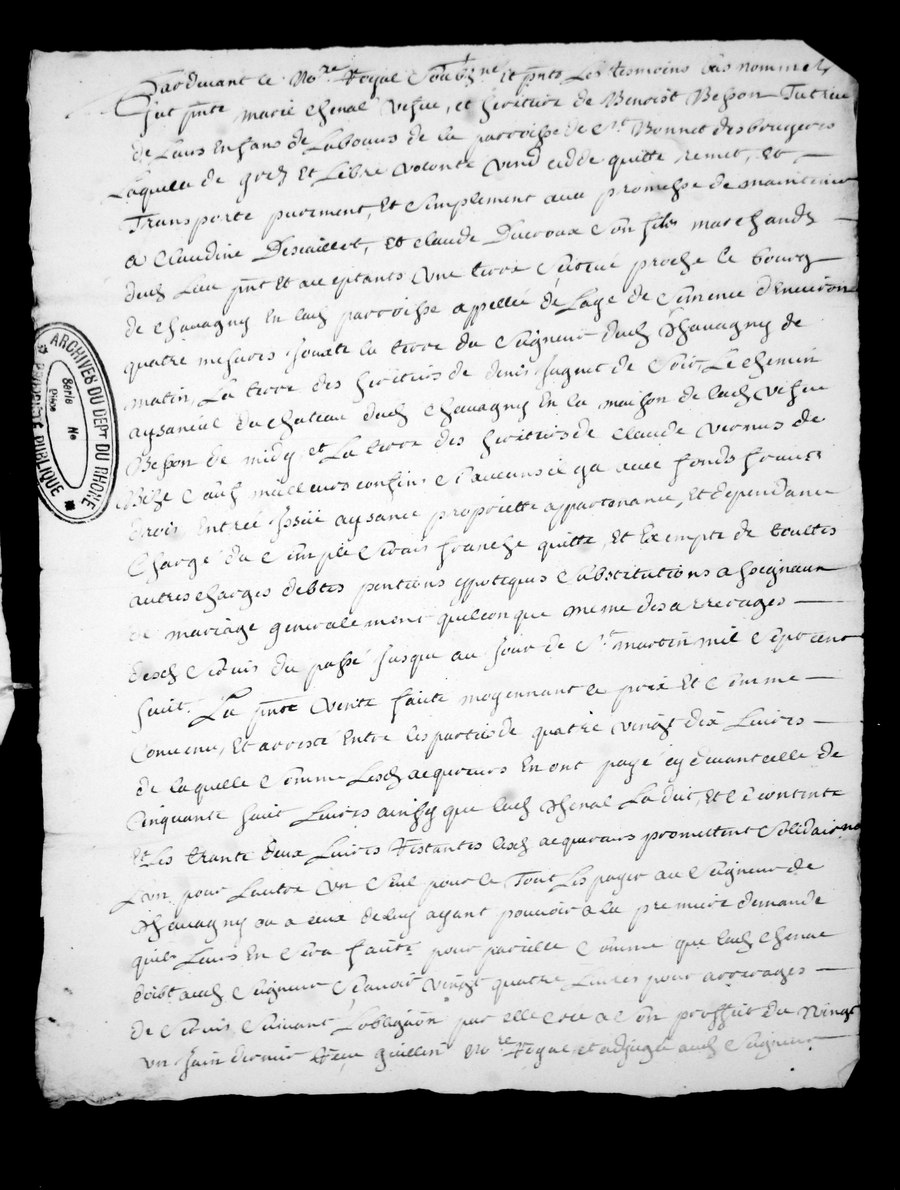 Pardevant le No.re Royal Soubz.ne Et pnts Les tesmoins bas nommetz
fut pnte marie Chenal vefue, et heritiere de Benoist Besson Tutrice
de Leurs Enfans de Labours de la parroisse de St Bonnet des bruyeres
Laquelle de gred Et Libre volonté vend cedde quitte remet, Et
Transporte purement, Et simplement avec promesse de maintenir
a Claudine Desaillet, Et claude Ducroux son filz marchands
dud Lieu pnt Et acceptants une terre scituée proche le bourg
de Chavagny En lad parroisse appellée de Lage de semence d'Environ
quatre mesures jouxte la terre du Seigneur dud Chavagny de
matin, La terre des heritiers de denis fagnet de soir, Le chemin
aysancial du chateau dud Chavagny En la maison de lad vefue
Besson de midy, et La terre des heritiers de Claude vernus de
Bize sauf meilleurs confins s'aucuns il y a avec fonds
drois Entrée Issüe aysance proprietté appartenance, Et dependance
Chargé du simple servis franche quitte, Et Exempte de touttes
autres charges debtes pentions ypoteques substitutions assignaux
de mariage generalement quelconque meme des arrerages
desd servis du passé jusque au jour de St martin mil sept cent
huit. La pnte vente faite moyennant le prix Et somme
Convenu, Et arresté Entre les parties de quatre vingt dix Livres
de laquelle somme Lesd acquereurs En ont payé cy devant celle de
Cinquante huit Livres ainsy que lad Chenal La dit, Et s'é contente
Et Les trante deux Livres restantes lesd acquereurs promettent solidairem
L'un pour Lautre un seul pour le Tout Les payer au Seigneur de
Chavagny ou a ceux de luy ayant pouvoir a la premiere demande
quils Leurs En sera faitte pour pareille somme que lad Chenal
doibt aud Seigneur sçavoir vingt quatre Livres pour arrerages
de servis suivant Lobligaõn par elle au profit du vingt
un juin dernier Receu guillin No.re Royal, et adjugé aud Seigneur
ARCHIVES DU DEPT DU RHONE
PROPRIÉTÉ PUBLIQUE
Série
No
Pièce